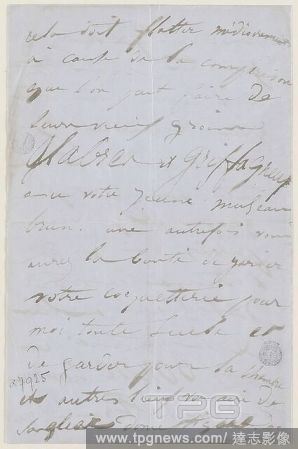 cela doit flatter médiocrement
à cause de la comparaison
que l'on peut faire de
leurs vieux
et
avec votre jeune museau
brun. une autre fois vous
aurez la bonté de garder
votre coquetterie pour
moi toute seule et
de garder pour la
et autres lieux vos airs de
a7925
TPG
www.tpgnews.com / 達志影像